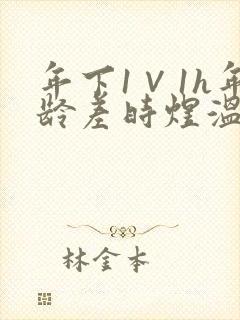 年下1V1h年
龄差时煌温
林金本